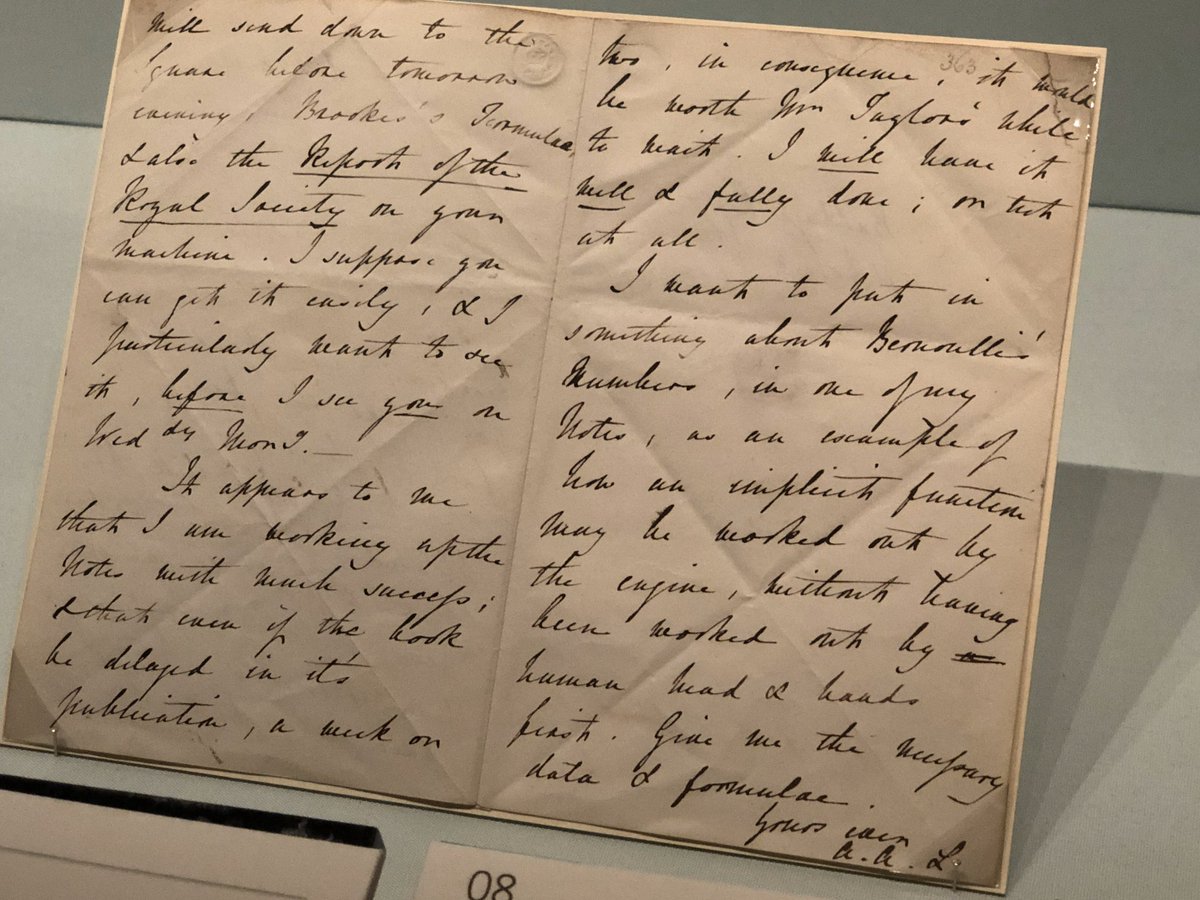 will send down to the
Square before tomorrow
evening, Brookes's Formulae,
& also the Report of the
Royal Society on your
machine. I suppose you
can get it easily, & I
particularly want to see
it, before I see you on
Wed dy Mor g.
It appears to me
that I am working up the
Notes with much success;
& that even if the book
be delayed in it's
publication, a week or
two, in consequence, it would
be worth Mr Taylor's while
to wait. I will have it
well & fully done; or not
at all.
I want to put in
something about Bernoulli's
Numbers, in one of my
Notes, as an example of
how an implicit function
may be worked out by
the engine, without having
been worked out by
human head & hands
first. Give me the necessary
data & formulae.
Yours ever
A.A.L
363
08